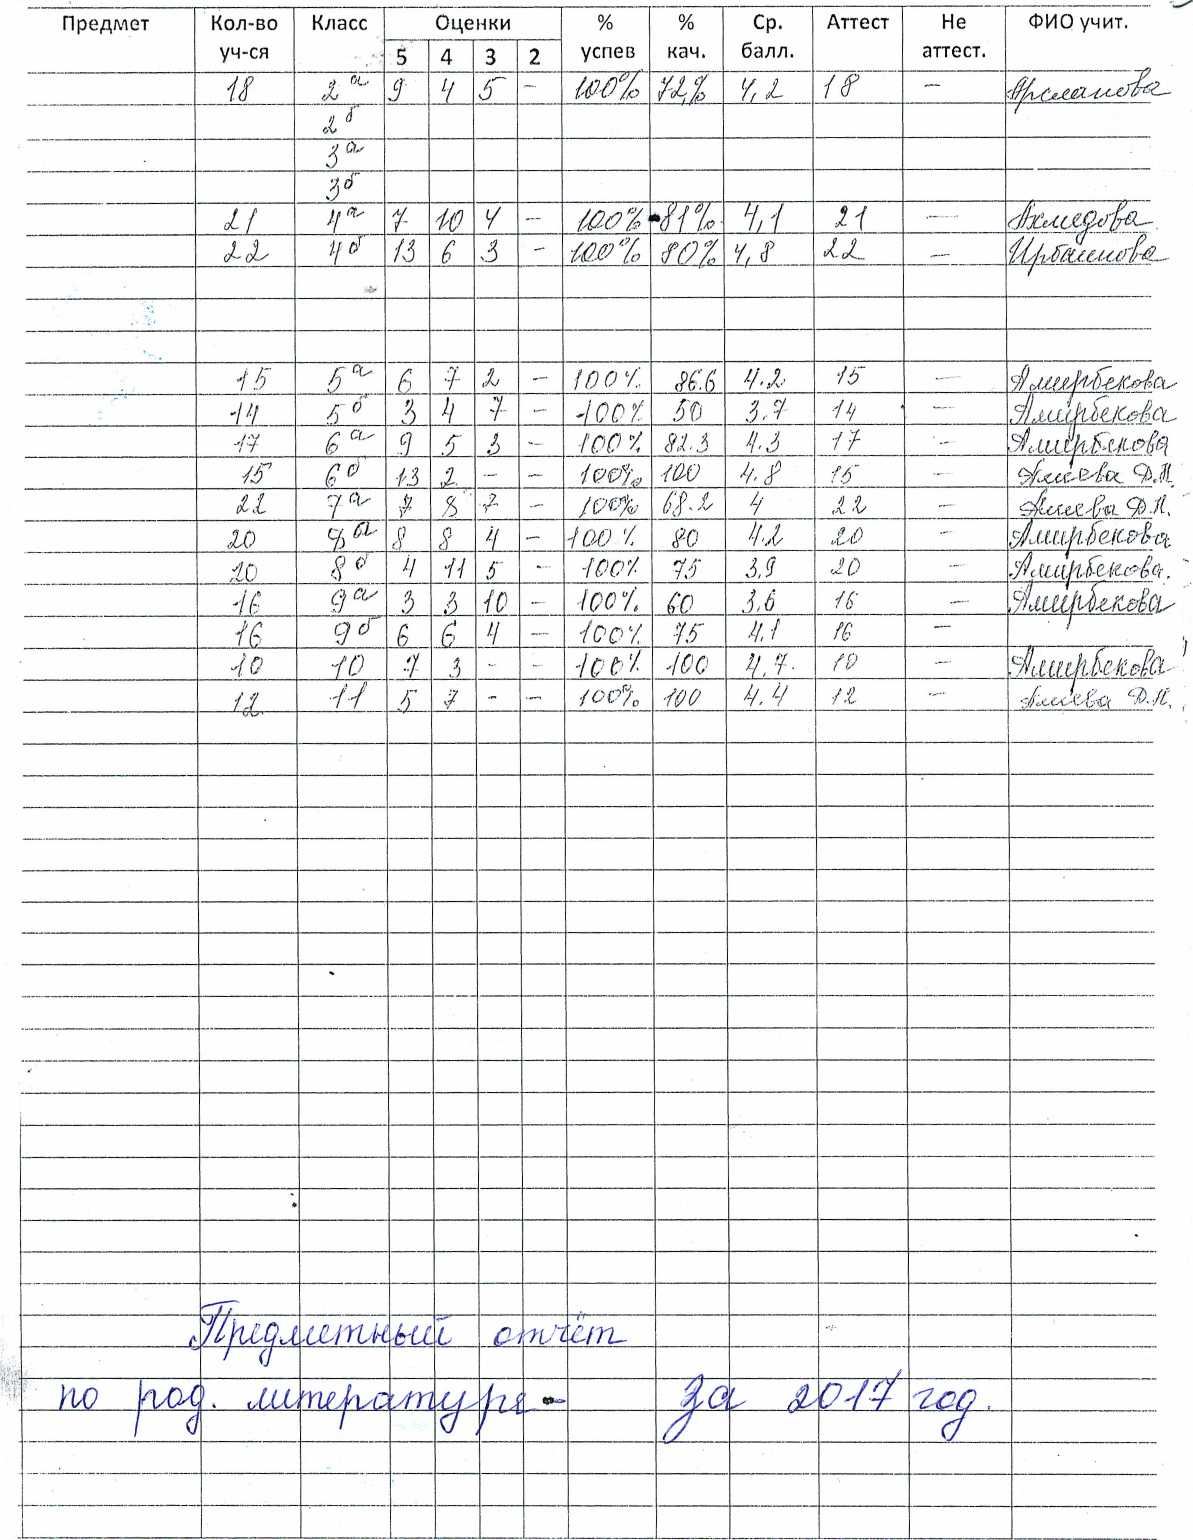 Предмет Кол-во уч-ся Класс Оценки 5 4 3 2 % успев % кач. Ср. балл. Аттест Не аттест. ФИО учит.
18 2а 9 4 5 - 100% 72% 4,2 18 - Арсланова
2б
3а
3б
21 4а 7 10 4 - 100% 81% 4,1 21 - Ахмедова
22 4б 13 6 3 - 100% 80% 4,8 22 - Ирбаинова
15 5а 6 7 2 - 100% 86.6 4.2 15 - Амирбекова
14 5б 3 4 7 - 100% 50 3.7 14 - Амирбекова
17 6а 9 5 3 - 100% 82.3 4.3 17 - Амирбекова
15 6б 13 2 - - 100% 100 4.8 15 - Алиева Д.П.
22 7а 7 8 7 - 100% 68.2 4 22 - Алиева Д.П.
20 8а 8 8 4 - 100% 80 4.2 20 - Амирбекова
20 8б 4 11 5 - 100% 75 3,9 20 - Амирбекова.
16 9а 3 3 10 - 100% 60 3,6 16 - Амирбекова
16 9б 6 6 4 - 100% 75 4,1 16 -
10 10 7 3 - - 100% 100 4.7. 10 - Амирбекова
12 11 5 7 - - 100% 100 4.4 12 - Алиева Д.П.
Предметный отчёт
по род. литературе - За 2017 год.